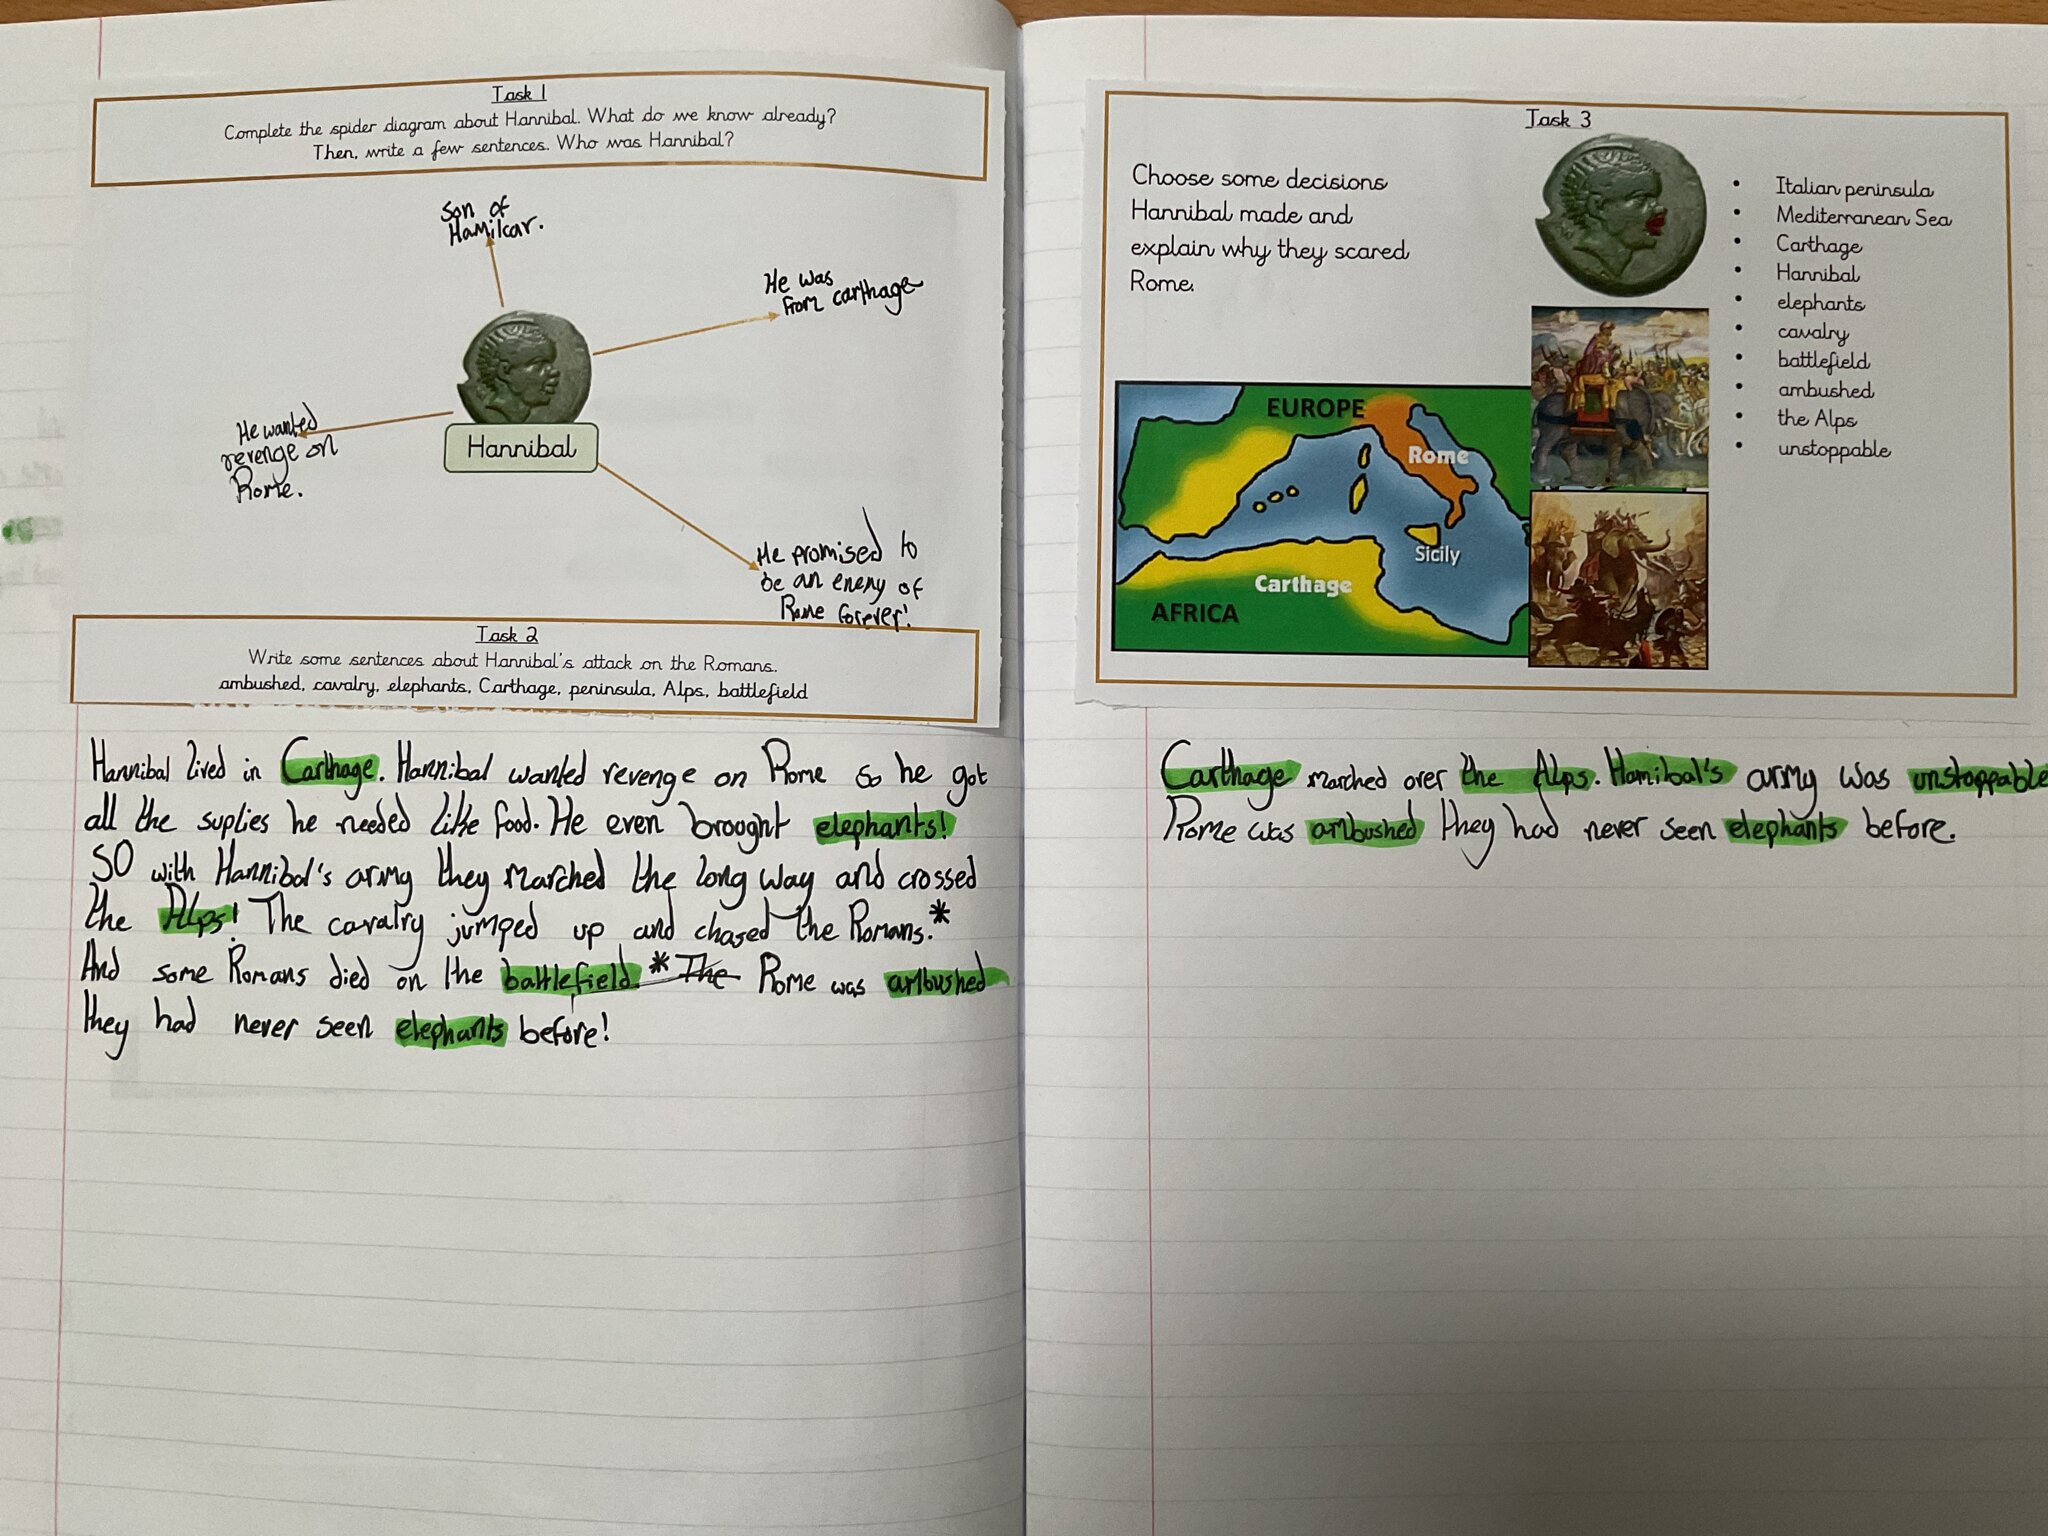 Task 1
Complete the spider diagram about Hannibal. What do we know already?
Then, write a few sentences. Who was Hannibal?
Son of
Hamilcar.
He was
from carthage
He wanted
revenge on
Rome.
Hannibal
He promised to
be an enemy of
Rome forever!
Task 2
Write some sentences about Hannibal's attack on the Romans.
ambushed, cavalry, elephants, Carthage, peninsula, Alps, battlefield
Hannibal lived in Carthage. Hannibal wanted revenge on Rome so he got
all the suplies he needed like food. He even brought elephants!
SO with Hannibal's army they marched the long way and crossed
the Alps! The cavalry jumped up and chased the Romans.*
And some Romans died on the battlefield. * The Rome was ambushed
they had never seen elephants before!
Task 3
Choose some decisions
Hannibal made and
explain why they scared
Rome.
• Italian peninsula
• Mediterranean Sea
• Carthage
• Hannibal
• elephants
• cavalry
• battlefield
• ambushed
• the Alps
• unstoppable
EUROPE
Rome
Sicily
Carthage
AFRICA
Carthage marched over the Alps. Hannibal's army was unstoppable
Rome was ambushed they had never seen elephants before.